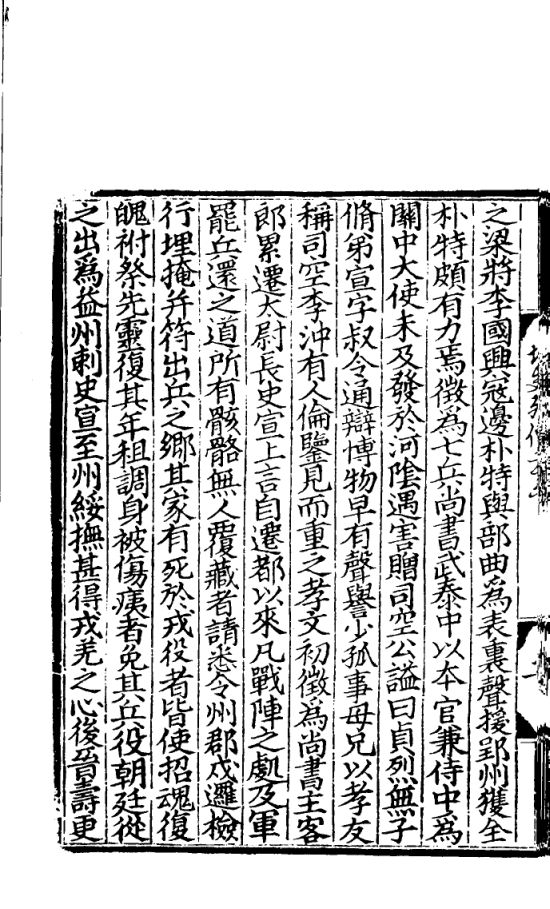 之梁將李國興寇邊朴特與部曲爲表裏聲援郢州獲全
朴特頗有力焉徵爲七兵尚書武泰中以本官兼侍中爲
關中大使未及發於河陰遇害贈司空公謚曰貞烈無子
脩弟宣字叔令通辯博物早有聲譽少孤事母兄以孝友
稱司空李沖有人倫鑒見而重之孝文初徵爲尚書主客
郎累遷太尉長史宣上言自遷都以來凡戰陣之處及軍
罷兵還之道所有骸骼無人覆藏者請悉令州郡戍邏檢
行埋掩幷符出兵之鄉其家有死於戎役者皆使招魂復
魄祔祭先靈復其年租調身被傷痍者免其兵役朝廷從
之出爲益州刺史宣至州綏撫甚得戎羌之心後晉壽更